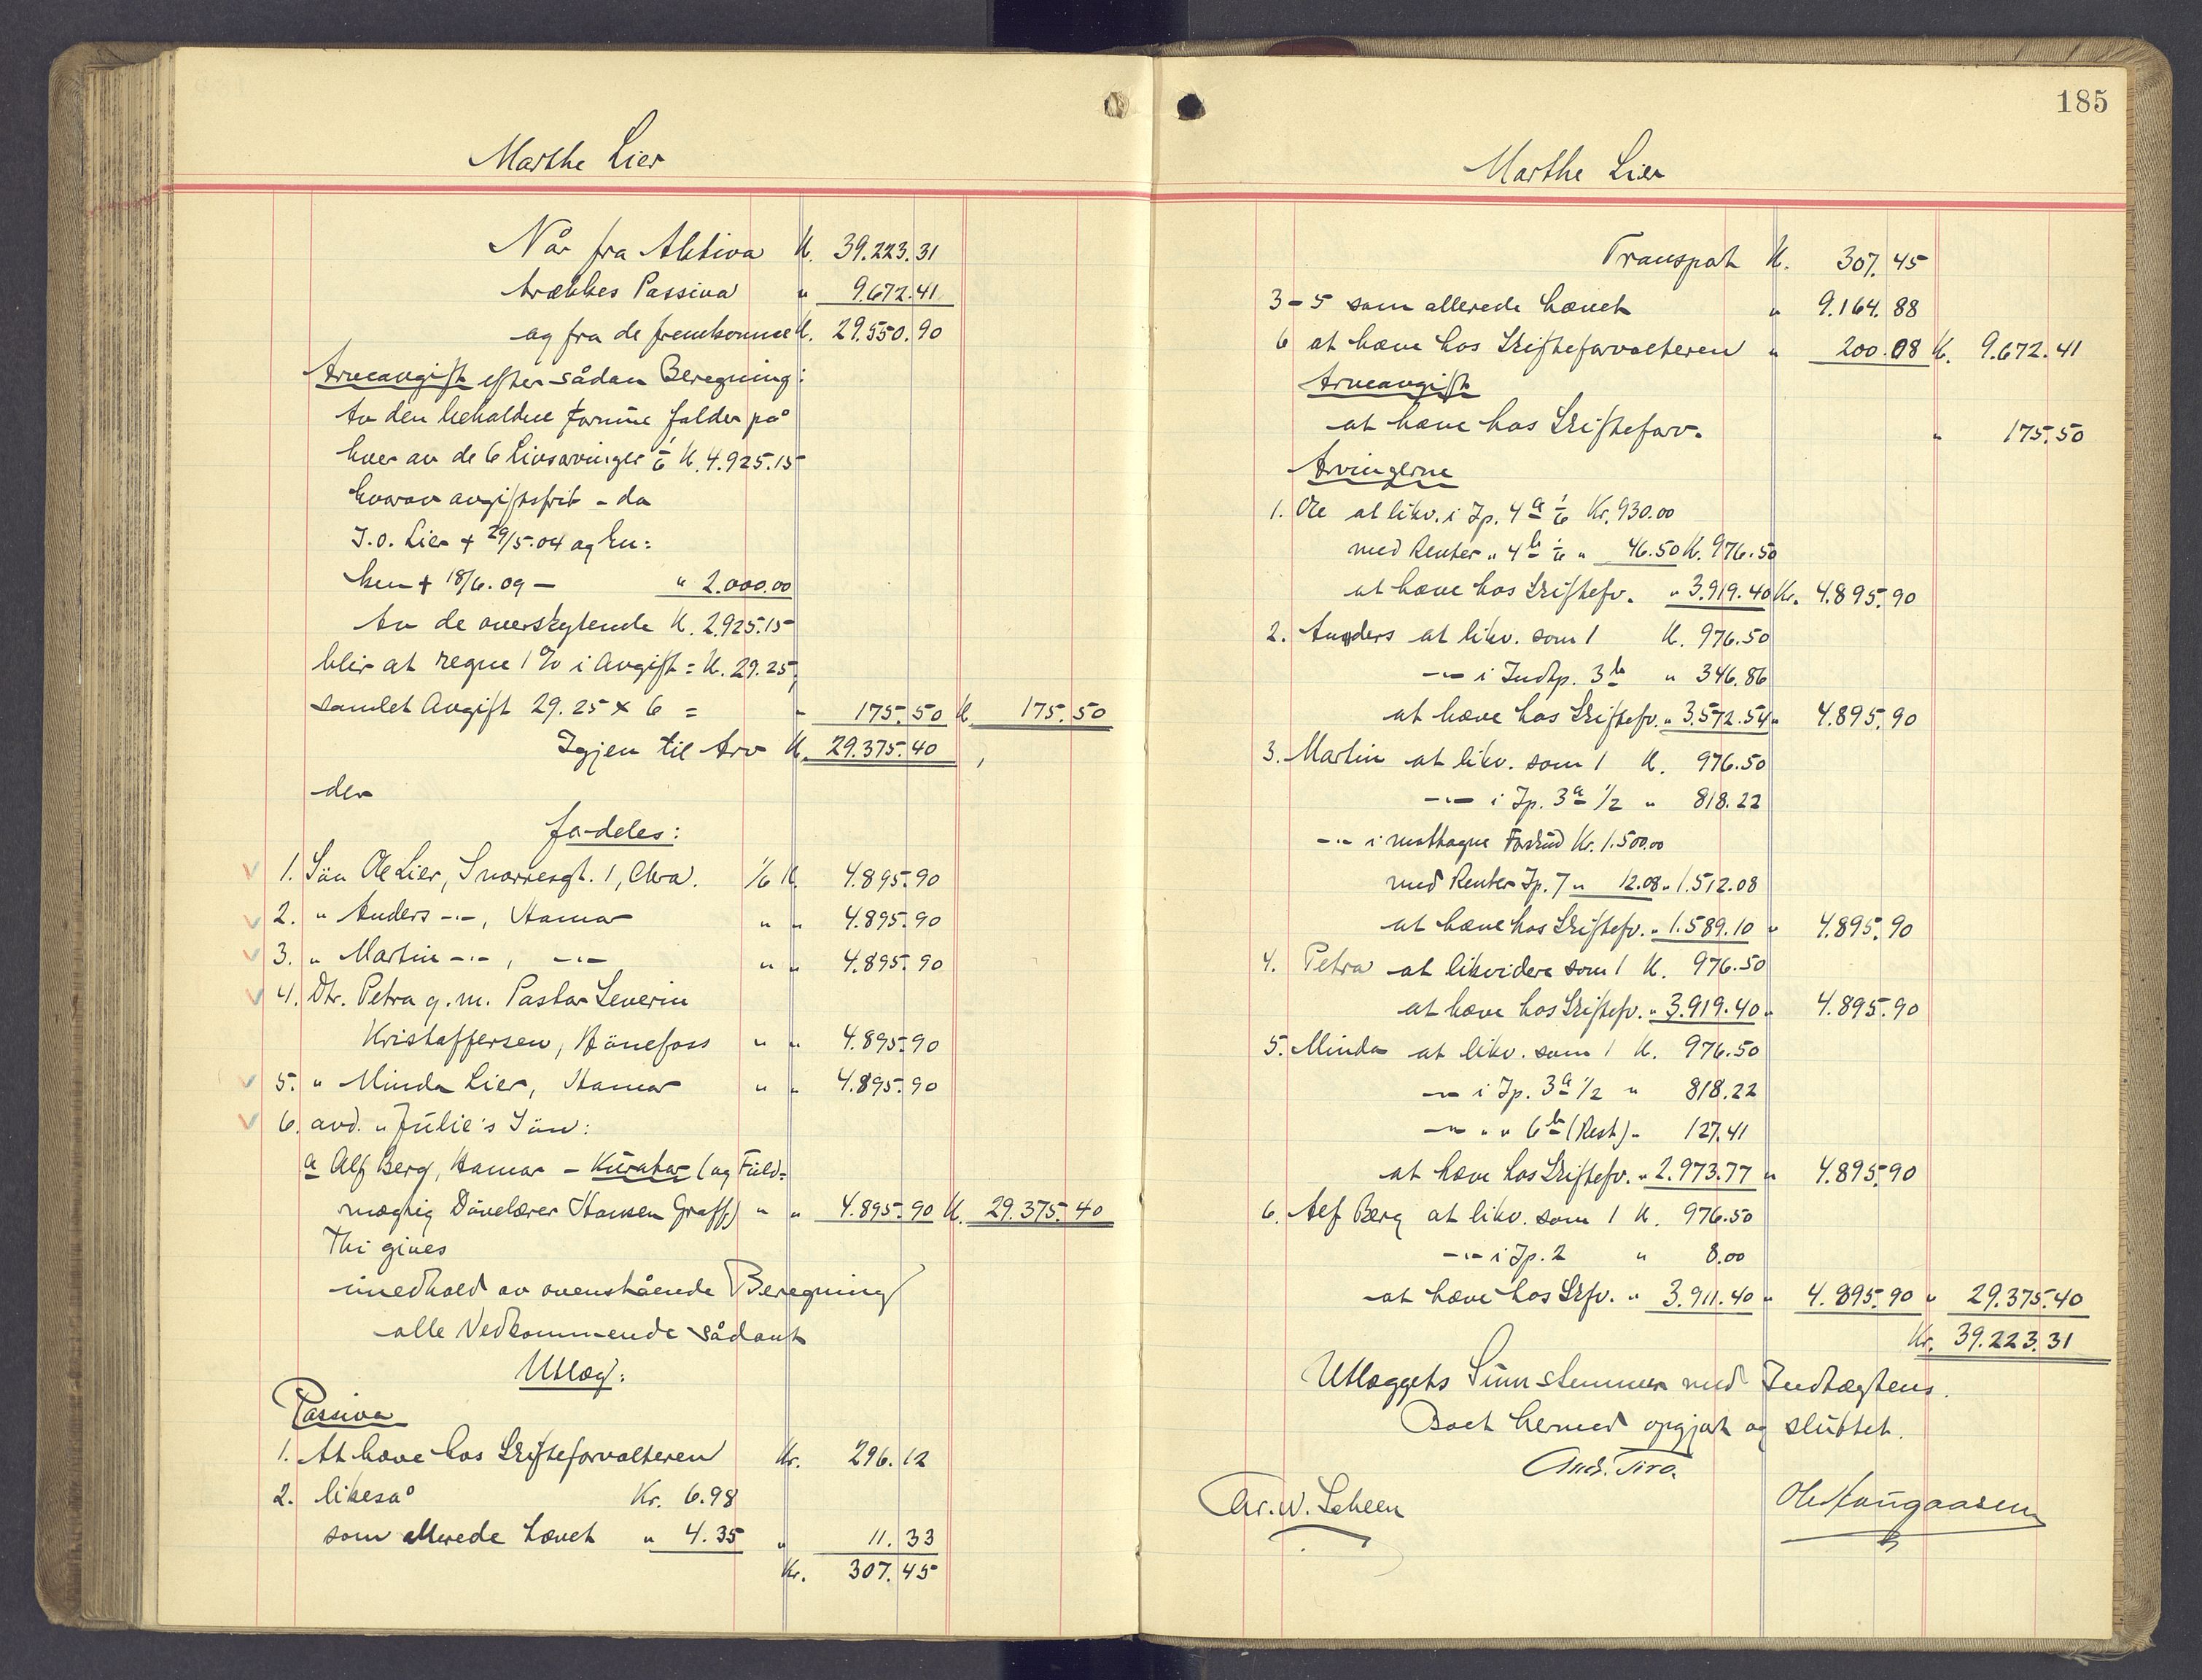 Marthe Lier
Når fra Aktiva K. 39.223.31
trækkes Passiva " 9.672.41
og fra de fremkomne K. 29.550.90
Arveavgift efter sådan Beregning:
Av den beholdne Formue falder på
hver av de 6 Livsarvinger 1/6 K. 4.925.15
hvorav avgiftsfrit - da
J.O. Lier + 29/5.04 og En:
ken + 18/6.09 - " 2.000.00
Av de overskytende K. 2.925.15
blir at regne 1% i Avgift = K. 29.25,
samlet Avgift 29.25 x 6 = " 175.50 K. 175.50
Igjen til Arv K. 29.375.40
der
fordeles:
1. Sön Ole Lier, Snorresgt. 1, Chra. 1/6 K. 4.895.90
2. " Anders -"-, Hamar " " 4.895.90
3. " Martin -"-, -"- " " 4.895.90
4. Dtr. Petra g.m. Pastor Severin
Kristoffersen, Hönefoss " " 4.895.90
5. " Minda Lier, Hamar " " 4.895.90
6. avd. " Julie's Sön:
a Alf Berg, Hamar - Kurator (og Fuld-
mægtig Dövelærer Hansen Graff) " " 4.895.90 K. 29.375.40
Thi gives
i medhold av ovenstående Beregning
alle Vedkommende sådant
Utlæg:
Passiva
1. At hæve hos Skifteforvalteren Kr. 296.12
2. likeså Kr. 6.98
som allerede hævet " 4.35 " 11.33
Kr. 307.45
185
Marthe Lier
Transport K. 307.45
3-5 som allerede hævet " 9.164.88
6 at hæve hos Skifteforvalteren " 200.08 K. 9.672.41
Arveavgift
at hæve hos Skifteforv. " 175.50
Arvingerne
1. Ole at likv. i Ip. 4a 1/6 Kr. 930.00
med Renter " 4b 1/6 " 46.50 K. 976.50
at hæve hos Skiftefv. " 3.919.40 Kr. 4.895.90
2. Anders at likv. som 1 K. 976.50
-"- i Indtp. 3b " 346.86
at hæve hos Skiftefv. " 3.572.54 " 4.895.90
3. Martin at likv. som 1 K. 976.50
-"- i Ip. 3a 1/2 " 818.22
-"- i mottagne Forskud Kr. 1.500.00
med Renter Ip. 7 " 12.08 " 1.512.08
at hæve hos Skiftefv. " 1.589.10 " 4.895.90
4. Petra at likvidere som 1 K. 976.50
at hæve hos Skiftefv. " 3.919.40 " 4.895.90
5. Minda at likv. som 1 K. 976.50
-"- i Ip. 3a 1/2 " 818.22
-"- " " 6b (Rest) " 127.41
at hæve hos Skiftefv. " 2.973.77 " 4.895.90
6. Alf Berg at likv. som 1 K. 976.50
-"- i Ip. 2 " 8.00
at hæve hos Skfv. " 3.911.40 " 4.895.90 " 29.375.40
Kr. 39.223.31
Utlæggets Sum stemmer med Indtægtens.
Boet hermed opgjort og sluttet.
And. Tiro.
Chr. W. Scheen
Ole Haugaasen